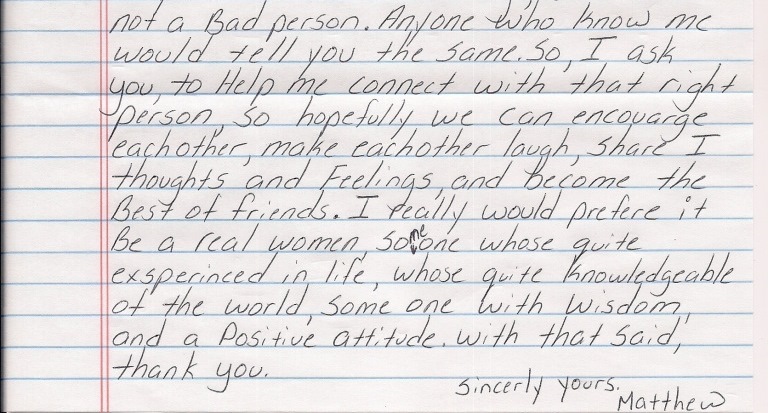 not a Bad person. Anyone who know me
would tell you the same. So, I ask
you, to Help me connect with that right
person, so hopefully we can encouarge
eachother, make eachother laugh, share I
thoughts and Feelings, and become the
Best of friends. I really would prefere it
Be a real women, someone whose quite
exsperinced in life, whose quite knowledgeable
of the world, some one with wisdom,
and a Positive attitude. with that said,
thank you.
Sincerly yours.
Matthew